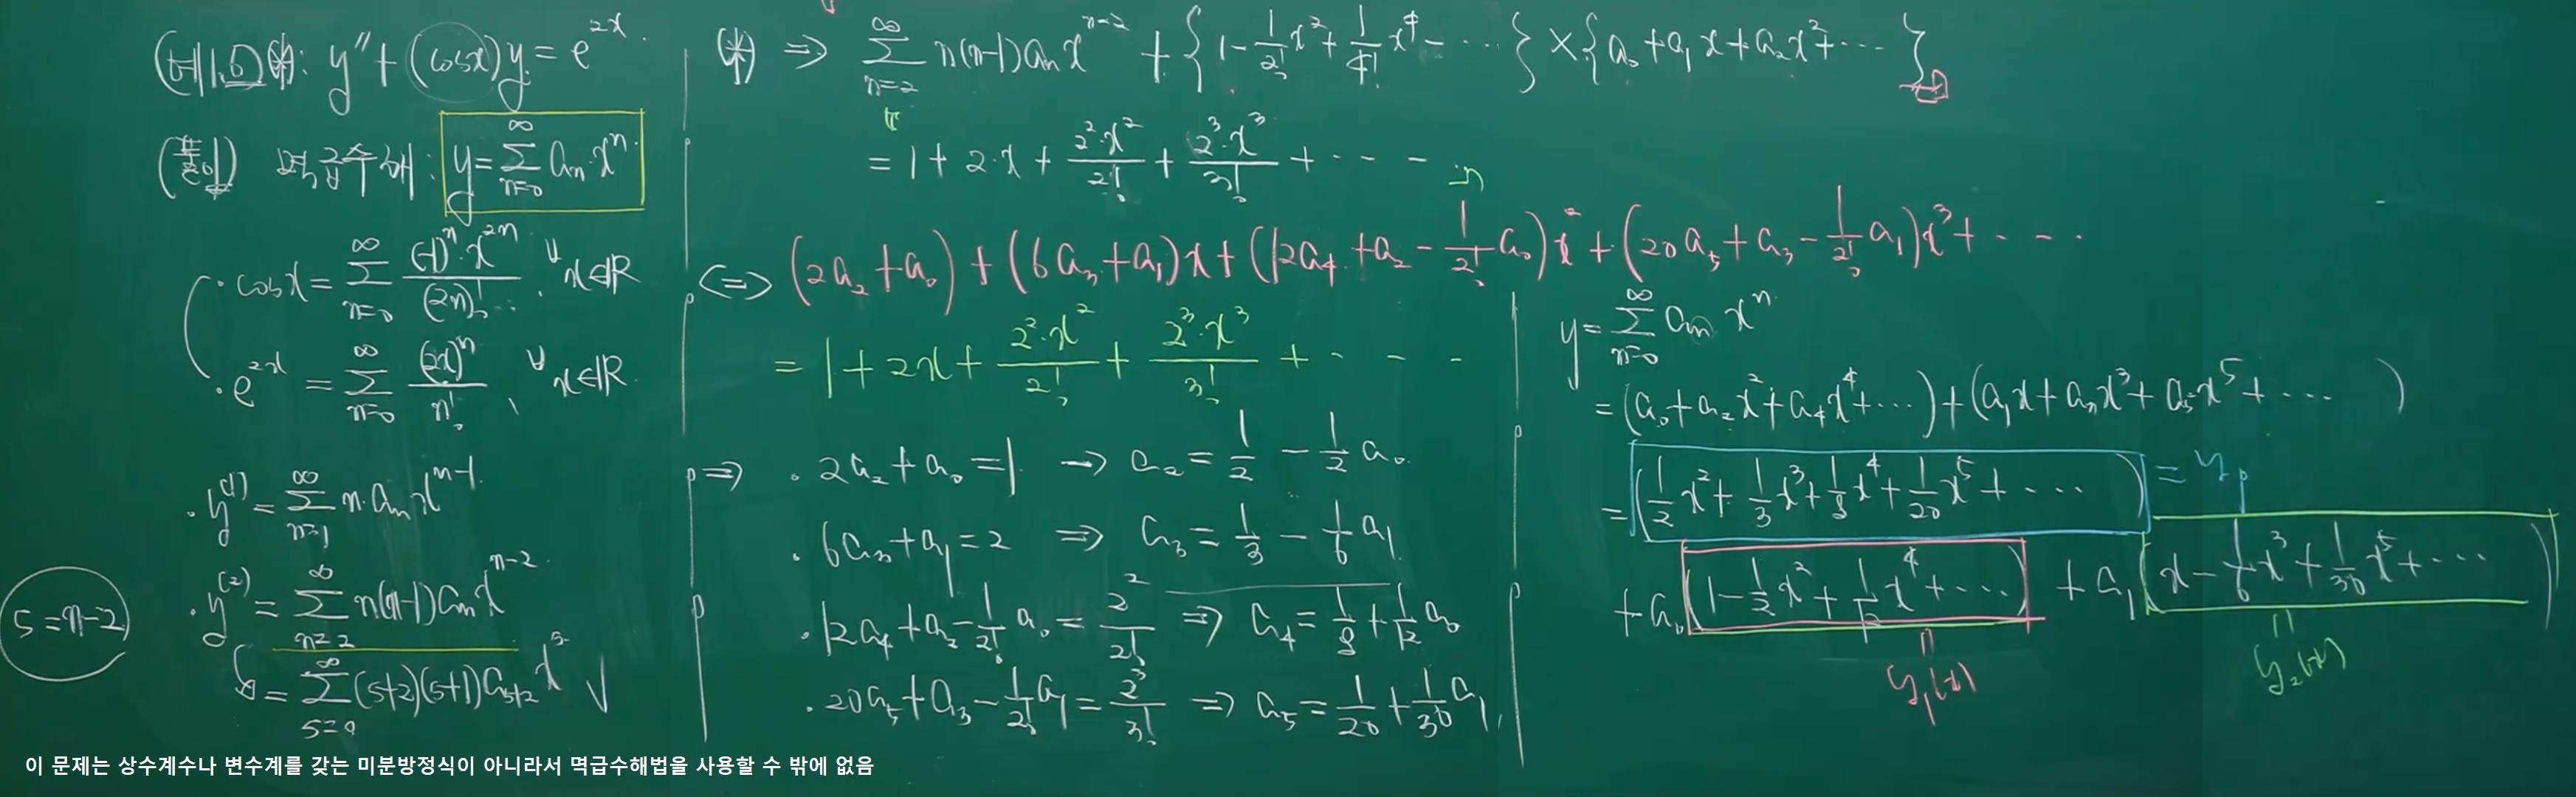 (예1.6)(*): y'' + (cosx)y = e^{2x}.
(풀이) 멱급수해: y = \sum_{n=0}^{∞} a_n·x^n.
· cosx = \sum_{n=0}^{∞} \frac{(-1)^n·x^{2n}}{(2n)!}, ∀x∈ℝ
· e^{2x} = \sum_{n=0}^{∞} \frac{(2x)^n}{n!}, ∀x∈ℝ
· y^{(1)} = \sum_{n=1}^{∞} n·a_n x^{n-1}.
· y^{(2)} = \sum_{n=2}^{∞} n(n-1)a_n x^{n-2}.
s = n-2
= \sum_{s=0}^{∞} (s+2)(s+1)a_{s+2} x^s √
(*) ⇒ \sum_{n=2}^{∞} n(n-1)a_n x^{n-2} + {1 - \frac{1}{2!}x^2 + \frac{1}{4!}x^4 - ···} × {a_0 + a_1 x + a_2 x^2 + ···}
= 1 + 2·x + \frac{2^2·x^2}{2!} + \frac{2^3·x^3}{3!} + ···
⇔ (2a_2 + a_0) + (6a_3 + a_1)x + (12a_4 + a_2 - \frac{1}{2!}a_0)x^2 + (20a_5 + a_3 - \frac{1}{2!}a_1)x^3 + ···
= 1 + 2x + \frac{2^2·x^2}{2!} + \frac{2^3·x^3}{3!} + ···
⇒ · 2a_2 + a_0 = 1 → a_2 = \frac{1}{2} - \frac{1}{2}a_0.
· 6a_3 + a_1 = 2 ⇒ a_3 = \frac{1}{3} - \frac{1}{6}a_1.
· 12a_4 + a_2 - \frac{1}{2!}a_0 = \frac{2^2}{2!} ⇒ a_4 = \frac{1}{8} + \frac{1}{12}a_0
· 20a_5 + a_3 - \frac{1}{2!}a_1 = \frac{2^3}{3!} ⇒ a_5 = \frac{1}{20} + \frac{1}{30}a_1,
y = \sum_{n=0}^{∞} a_n x^n.
= (a_0 + a_2 x^2 + a_4 x^4 + ···) + (a_1 x + a_3 x^3 + a_5 x^5 + ···)
= (\frac{1}{2}x^2 + \frac{1}{3}x^3 + \frac{1}{8}x^4 + \frac{1}{20}x^5 + ···) = y_p
+ a_0(1 - \frac{1}{2}x^2 + \frac{1}{12}x^4 + ···) + a_1(x - \frac{1}{6}x^3 + \frac{1}{30}x^5 + ···)
= y_1(x)
= y_2(x)
이 문제는 상수계수나 변수계를 갖는 미분방정식이 아니라서 멱급수해법을 사용할 수 밖에 없음